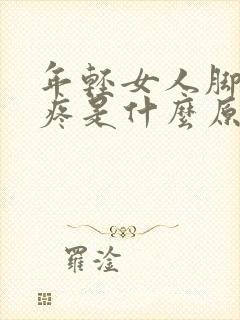 年轻女人脚
疼是什麼原
羅淦